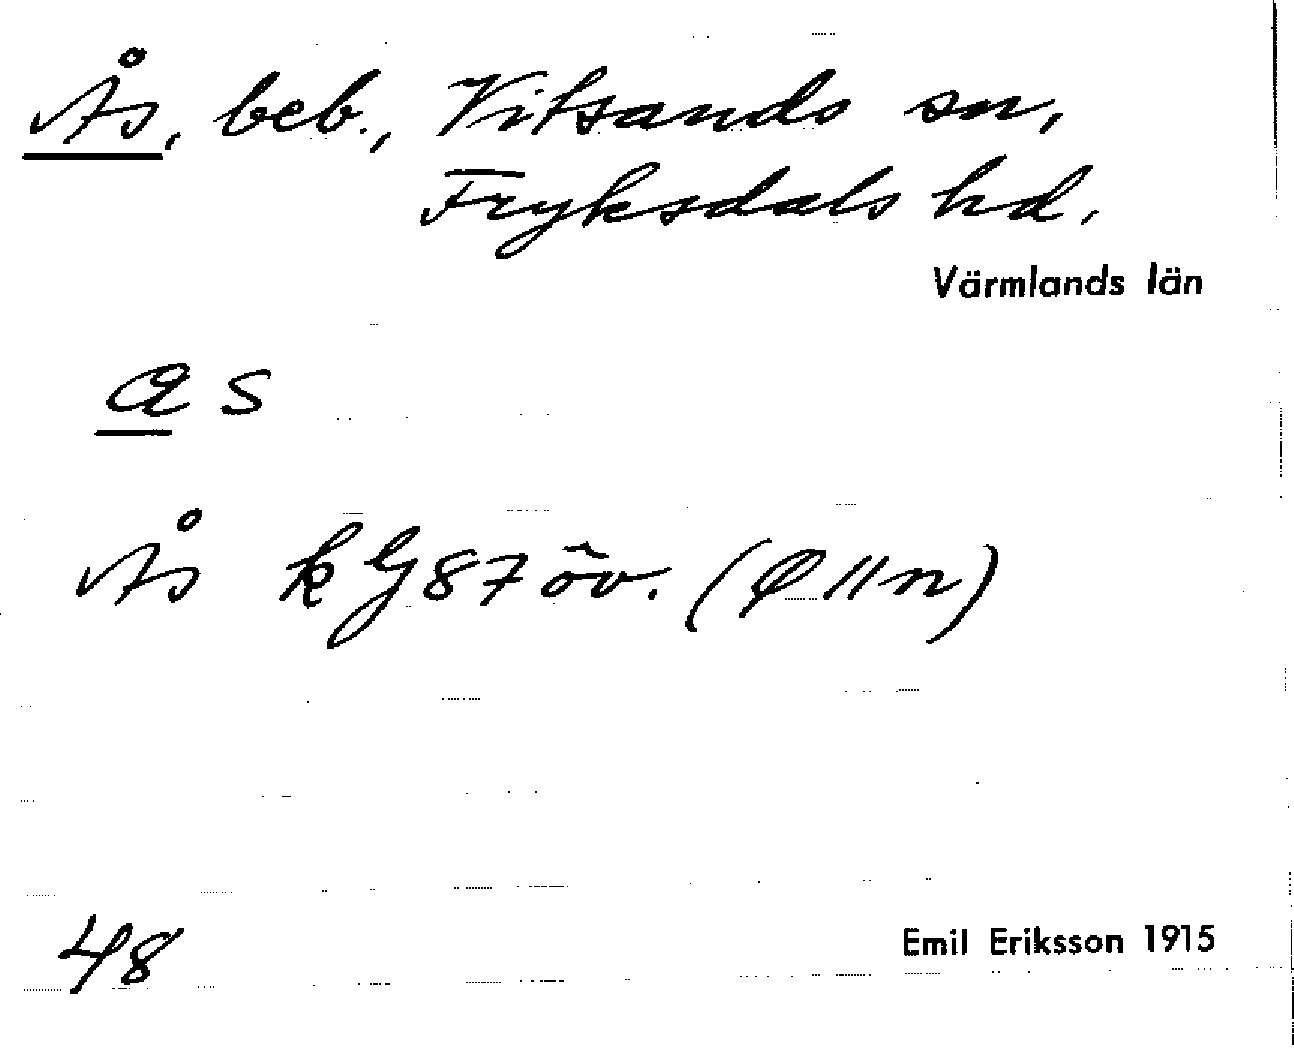 Ås, beb., Vitsands sn,
Fryksdals hd.
Värmlands län
a s
Ås k G 87 öv. (φ 11 n)
48
Emil Eriksson 1915